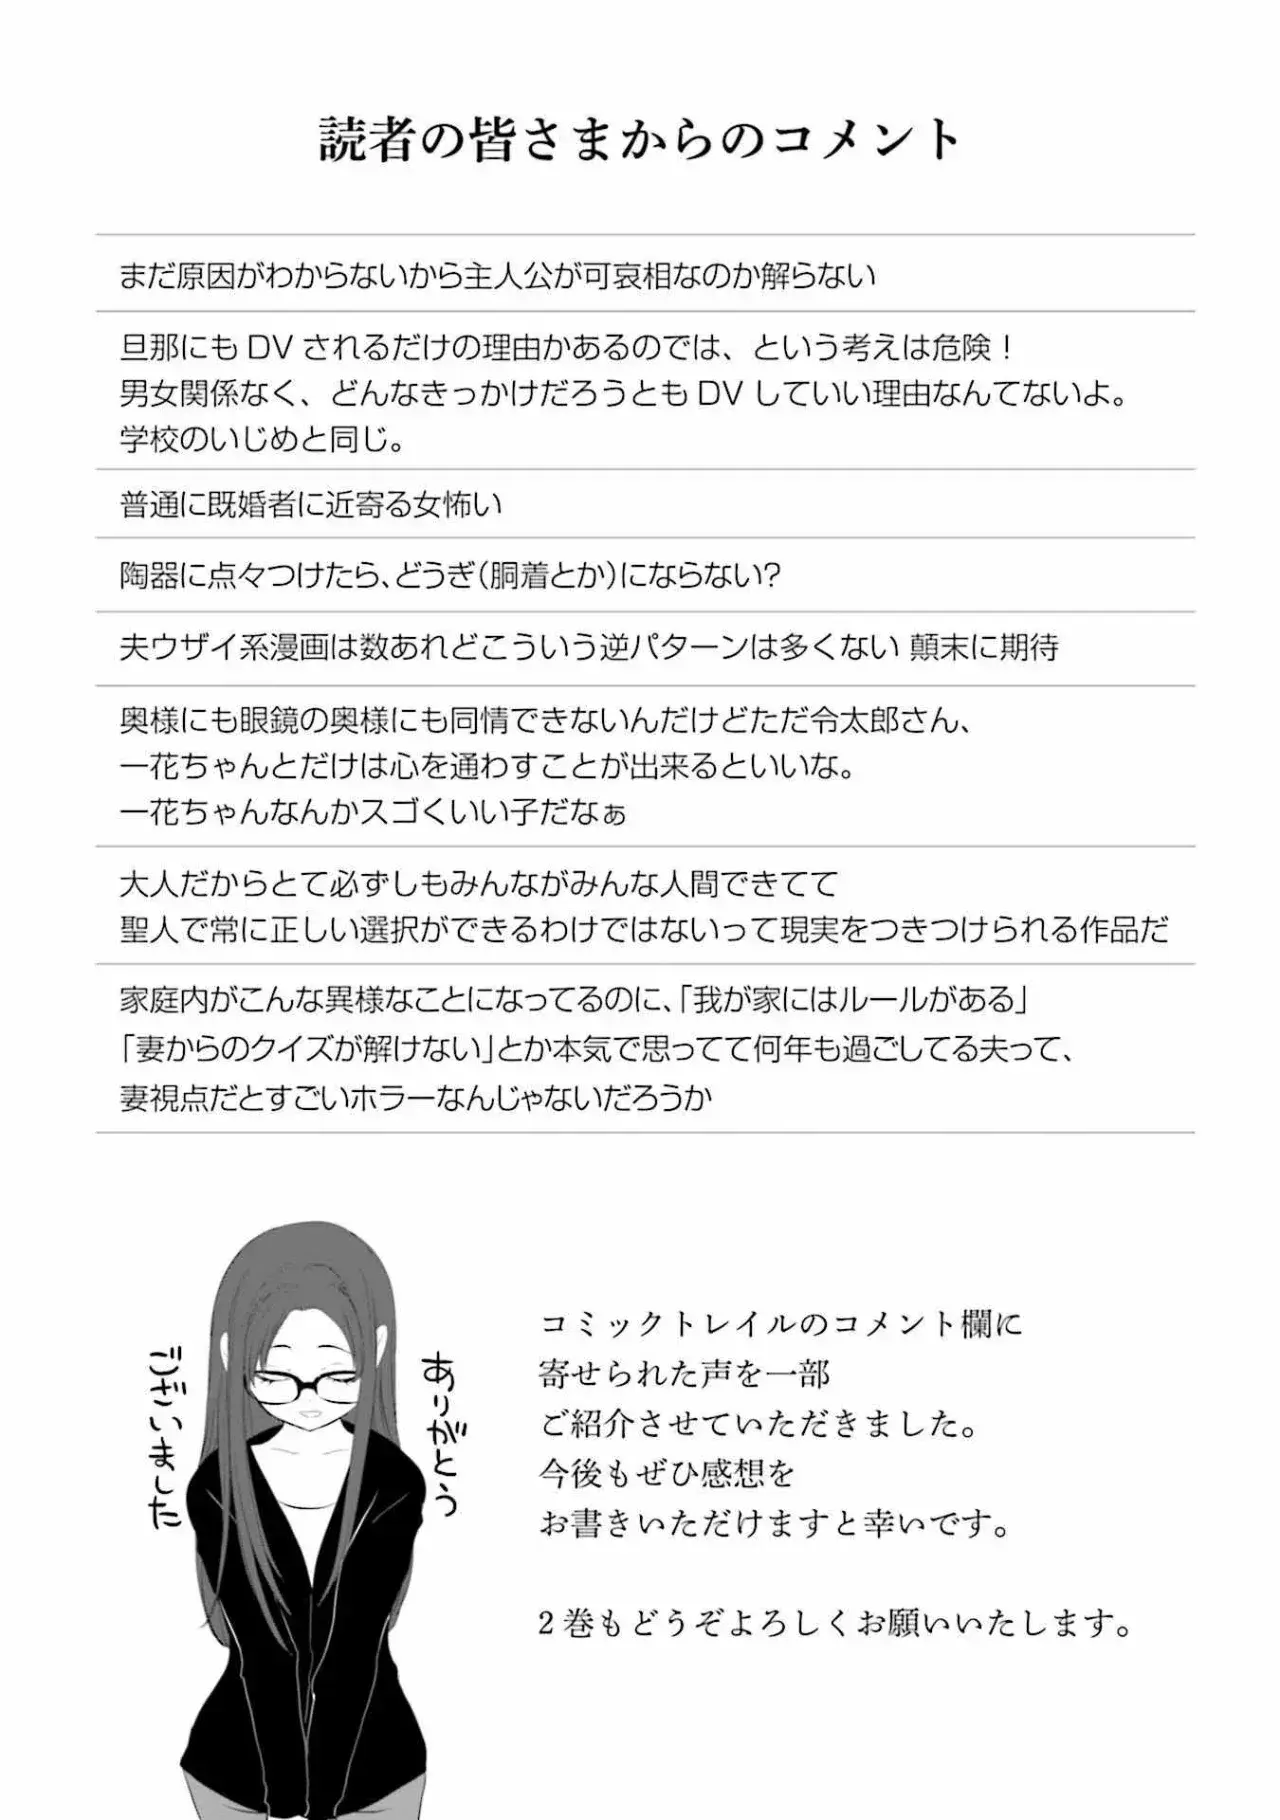 読者の皆さまからのコメント
まだ原因がわからないから主人公が可哀相なのか解らない
旦那にもDVされるだけの理由かあるのでは、という考えは危険！
男女関係なく、どんなきっかけだろうともDVしていい理由なんてないよ。
学校のいじめと同じ。
普通に既婚者に近寄る女怖い
陶器に点々つけたら、どうぎ（胴着とか）にならない？
夫ウザイ系漫画は数あれどこういう逆パターンは多くない 顛末に期待
奥様にも眼鏡の奥様にも同情できないんだけどただ令太郎さん、
一花ちゃんとだけは心を通わすことが出来るといいな。
一花ちゃんなんかスゴくいい子だなぁ
大人だからとて必ずしもみんながみんな人間できてて
聖人で常に正しい選択ができるわけではないって現実をつきつけられる作品だ
家庭内がこんな異様なことになってるのに、「我が家にはルールがある」
「妻からのクイズが解けない」とか本気で思ってて何年も過ごしてる夫って、
妻視点だとすごいホラーなんじゃないだろうか
ありがとう
ございました
コミックトレイルのコメント欄に
寄せられた声を一部
ご紹介させていただきました。
今後もぜひ感想を
お書きいただけますと幸いです。
2巻もどうぞよろしくお願いいたします。